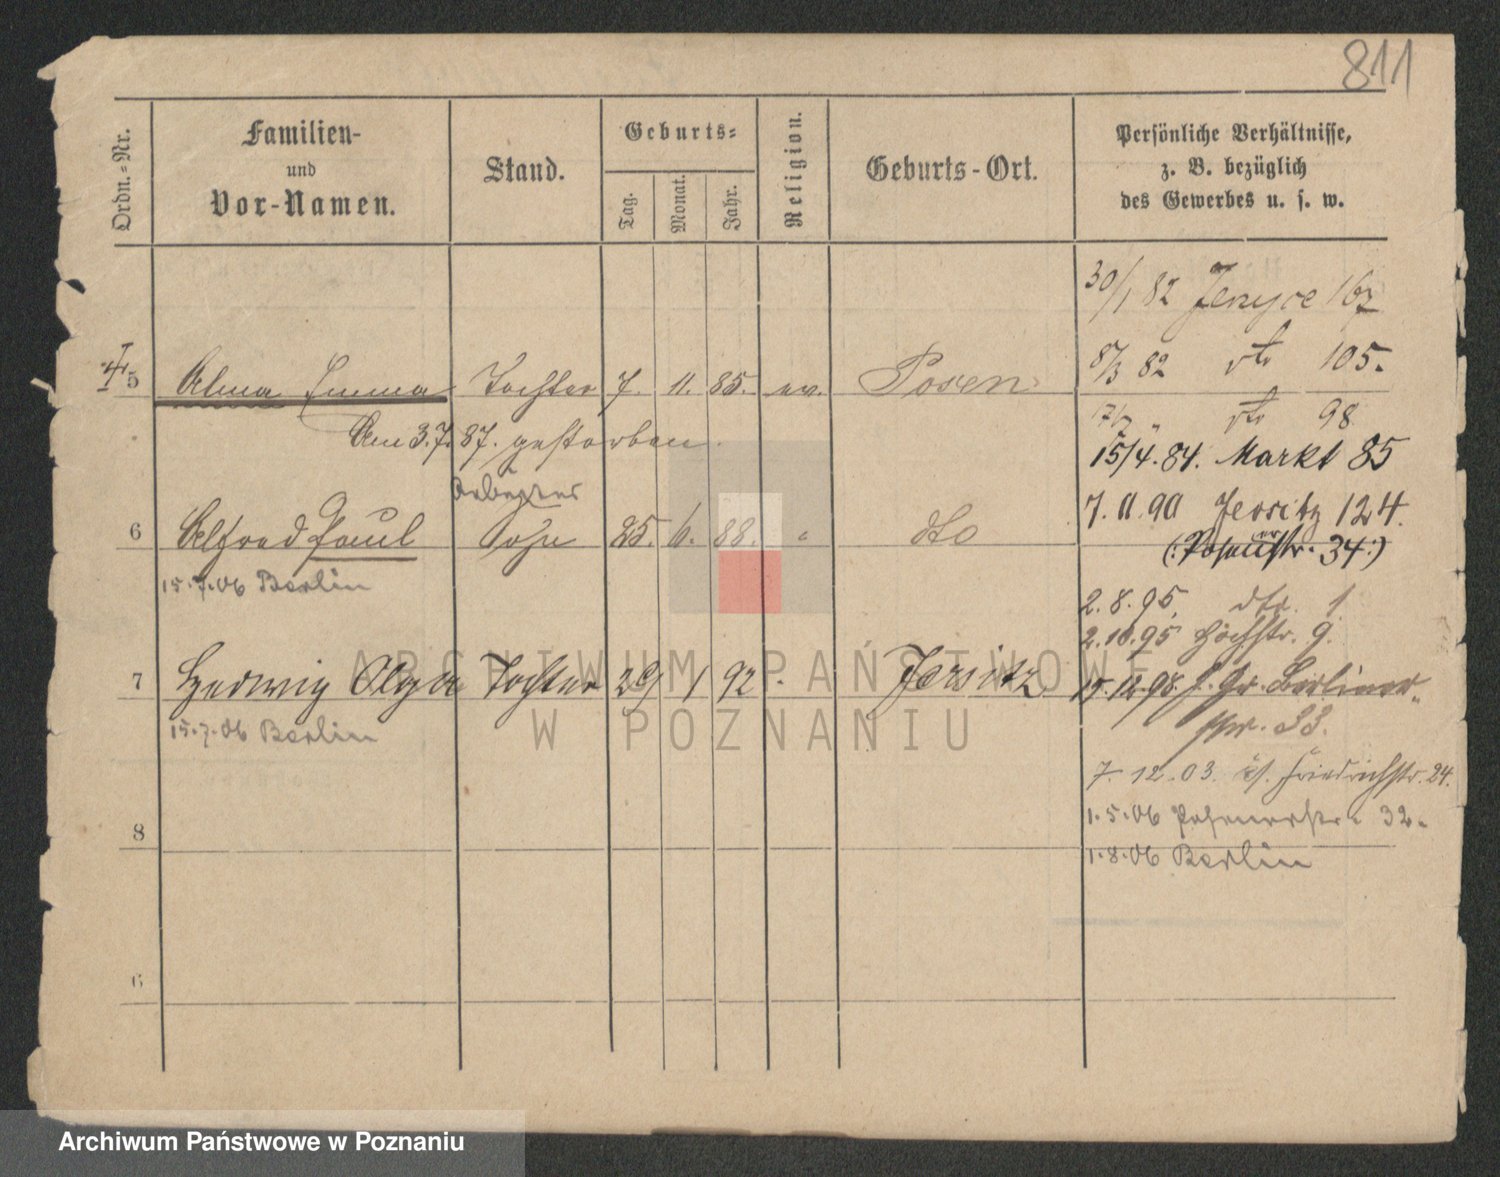 811
Ordn.-Nr.
Familien-
und
Vor-Namen.
Stand.
Geburts-
Tag.
Monat.
Jahr.
Religion.
Geburts-Ort.
Persönliche Verhältnisse,
z. B. bezüglich
des Gewerbes u. s. w.
30/1 82 Jerzyce 167
8/3 82 dto 105.
5 Alma Emma Tochter 7. 11. 85. ev. Posen
dto 98
Am 3.7.87. gestorben.
15/4.84. Markt 85
Arbeiter
7.11.90 Jersitz 124.
6 Alfred Paul Sohn 25. 6. 88. " dto
(:Posenerstr. 34:)
15.7.06 Berlin
2.8.95. dto. 1
2.10.95 Hochstr. 9.
7 Hedwig Olga Tochter 29/ 1 92 " Jersitz
15.12.98 Berliner-
str. 33.
15.7.06 Berlin
7.12.03. Friedrichstr. 24.
1.5.06 Posenerstr. 32.
8
1.8.06 Berlin
ARCHIWUM PAŃSTWOWE
W POZNANIU
Archiwum Państwowe w Poznaniu